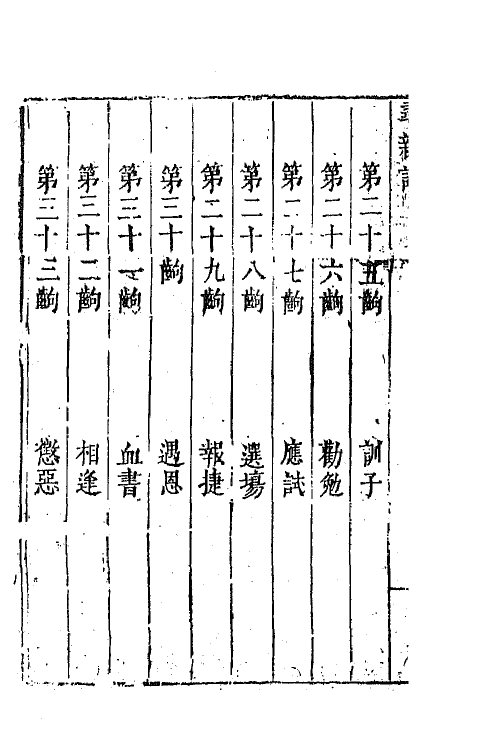 第二十五齣　訓子
第二十六齣　勸勉
第二十七齣　應試
第二十八齣　選場
第二十九齣　報捷
第三十齣　遇恩
第三十一齣　血書
第三十二齣　相逢
第三十三齣　懲惡